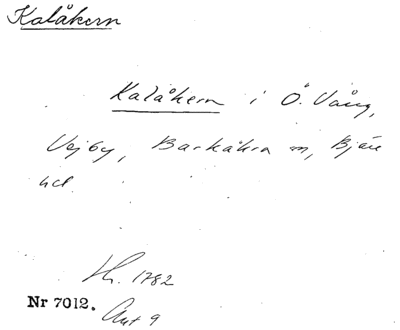 Kalåkern
Kalåkern i Ö. Vång,
Vejby, Barkåkra sn, Bjäre
hd.
Kr. 1782
Nr 7012.
Akt 9